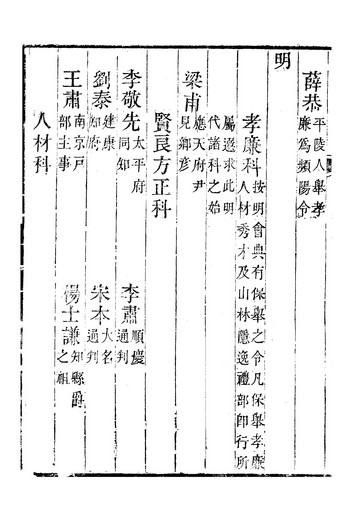 薛恭 平陵人舉孝廉爲頻陽令
明
孝廉科 按明會典有保舉之令凡保舉孝廉人材秀才及山林隱逸禮部即行所屬遴求此明代諸科之始
梁甫 應天府尹見鄉彥
賢良方正科
李敬先 太平府同知 李肅 順慶通判
劉泰 建康知府 宋本 大名通判
王肅 南京戶部主事 楊士謙 知縣爵之祖
人材科